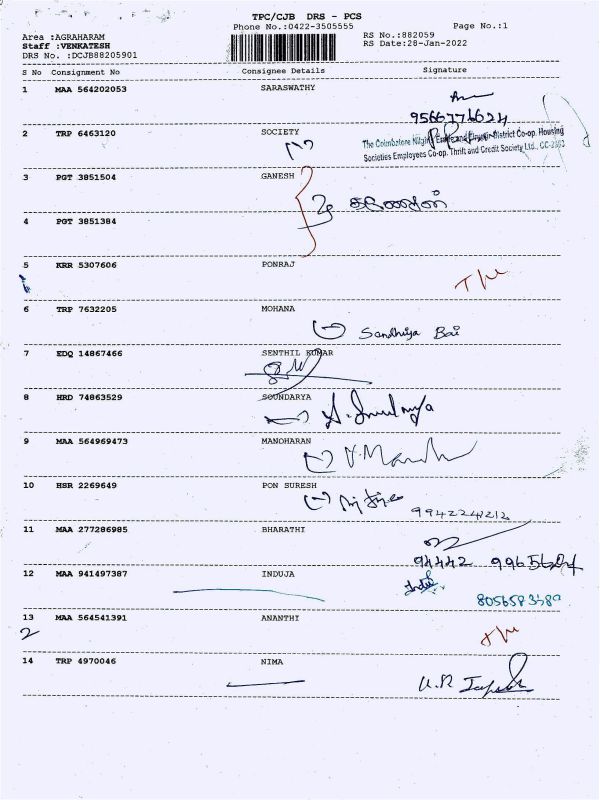 TPC/CJB DRS - PCS
Phone No.:0422-3505555 Page No.:1
Area :AGRAHARAM RS No.:882059
Staff :VENKATESH RS Date:28-Jan-2022
DRS No. :DCJB88205901
S No Consignment No Consignee Details Signature
1 MAA 564202053 SARASWATHY
9566776624
2 TRP 6463120 SOCIETY
The Coimbatore Nilgiris Erode and District Co-op. Housing
Societies Employees Co-op. Thrift and Credit Society Ltd.,
3 PGT 3851504 GANESH
4 PGT 3851384
5 KRR 5307606 PONRAJ
6 TRP 7632205 MOHANA
Sandhiya Bai
7 EDQ 14867466 SENTHIL KUMAR
8 HRD 74863529 SOUNDARYA
9 MAA 564969473 MANOHARAN
10 HSR 2269649 PON SURESH
11 MAA 277286985 BHARATHI
94442
12 MAA 941497387 INDUJA
13 MAA 564541391 ANANTHI
2
14 TRP 4970046 NIMA